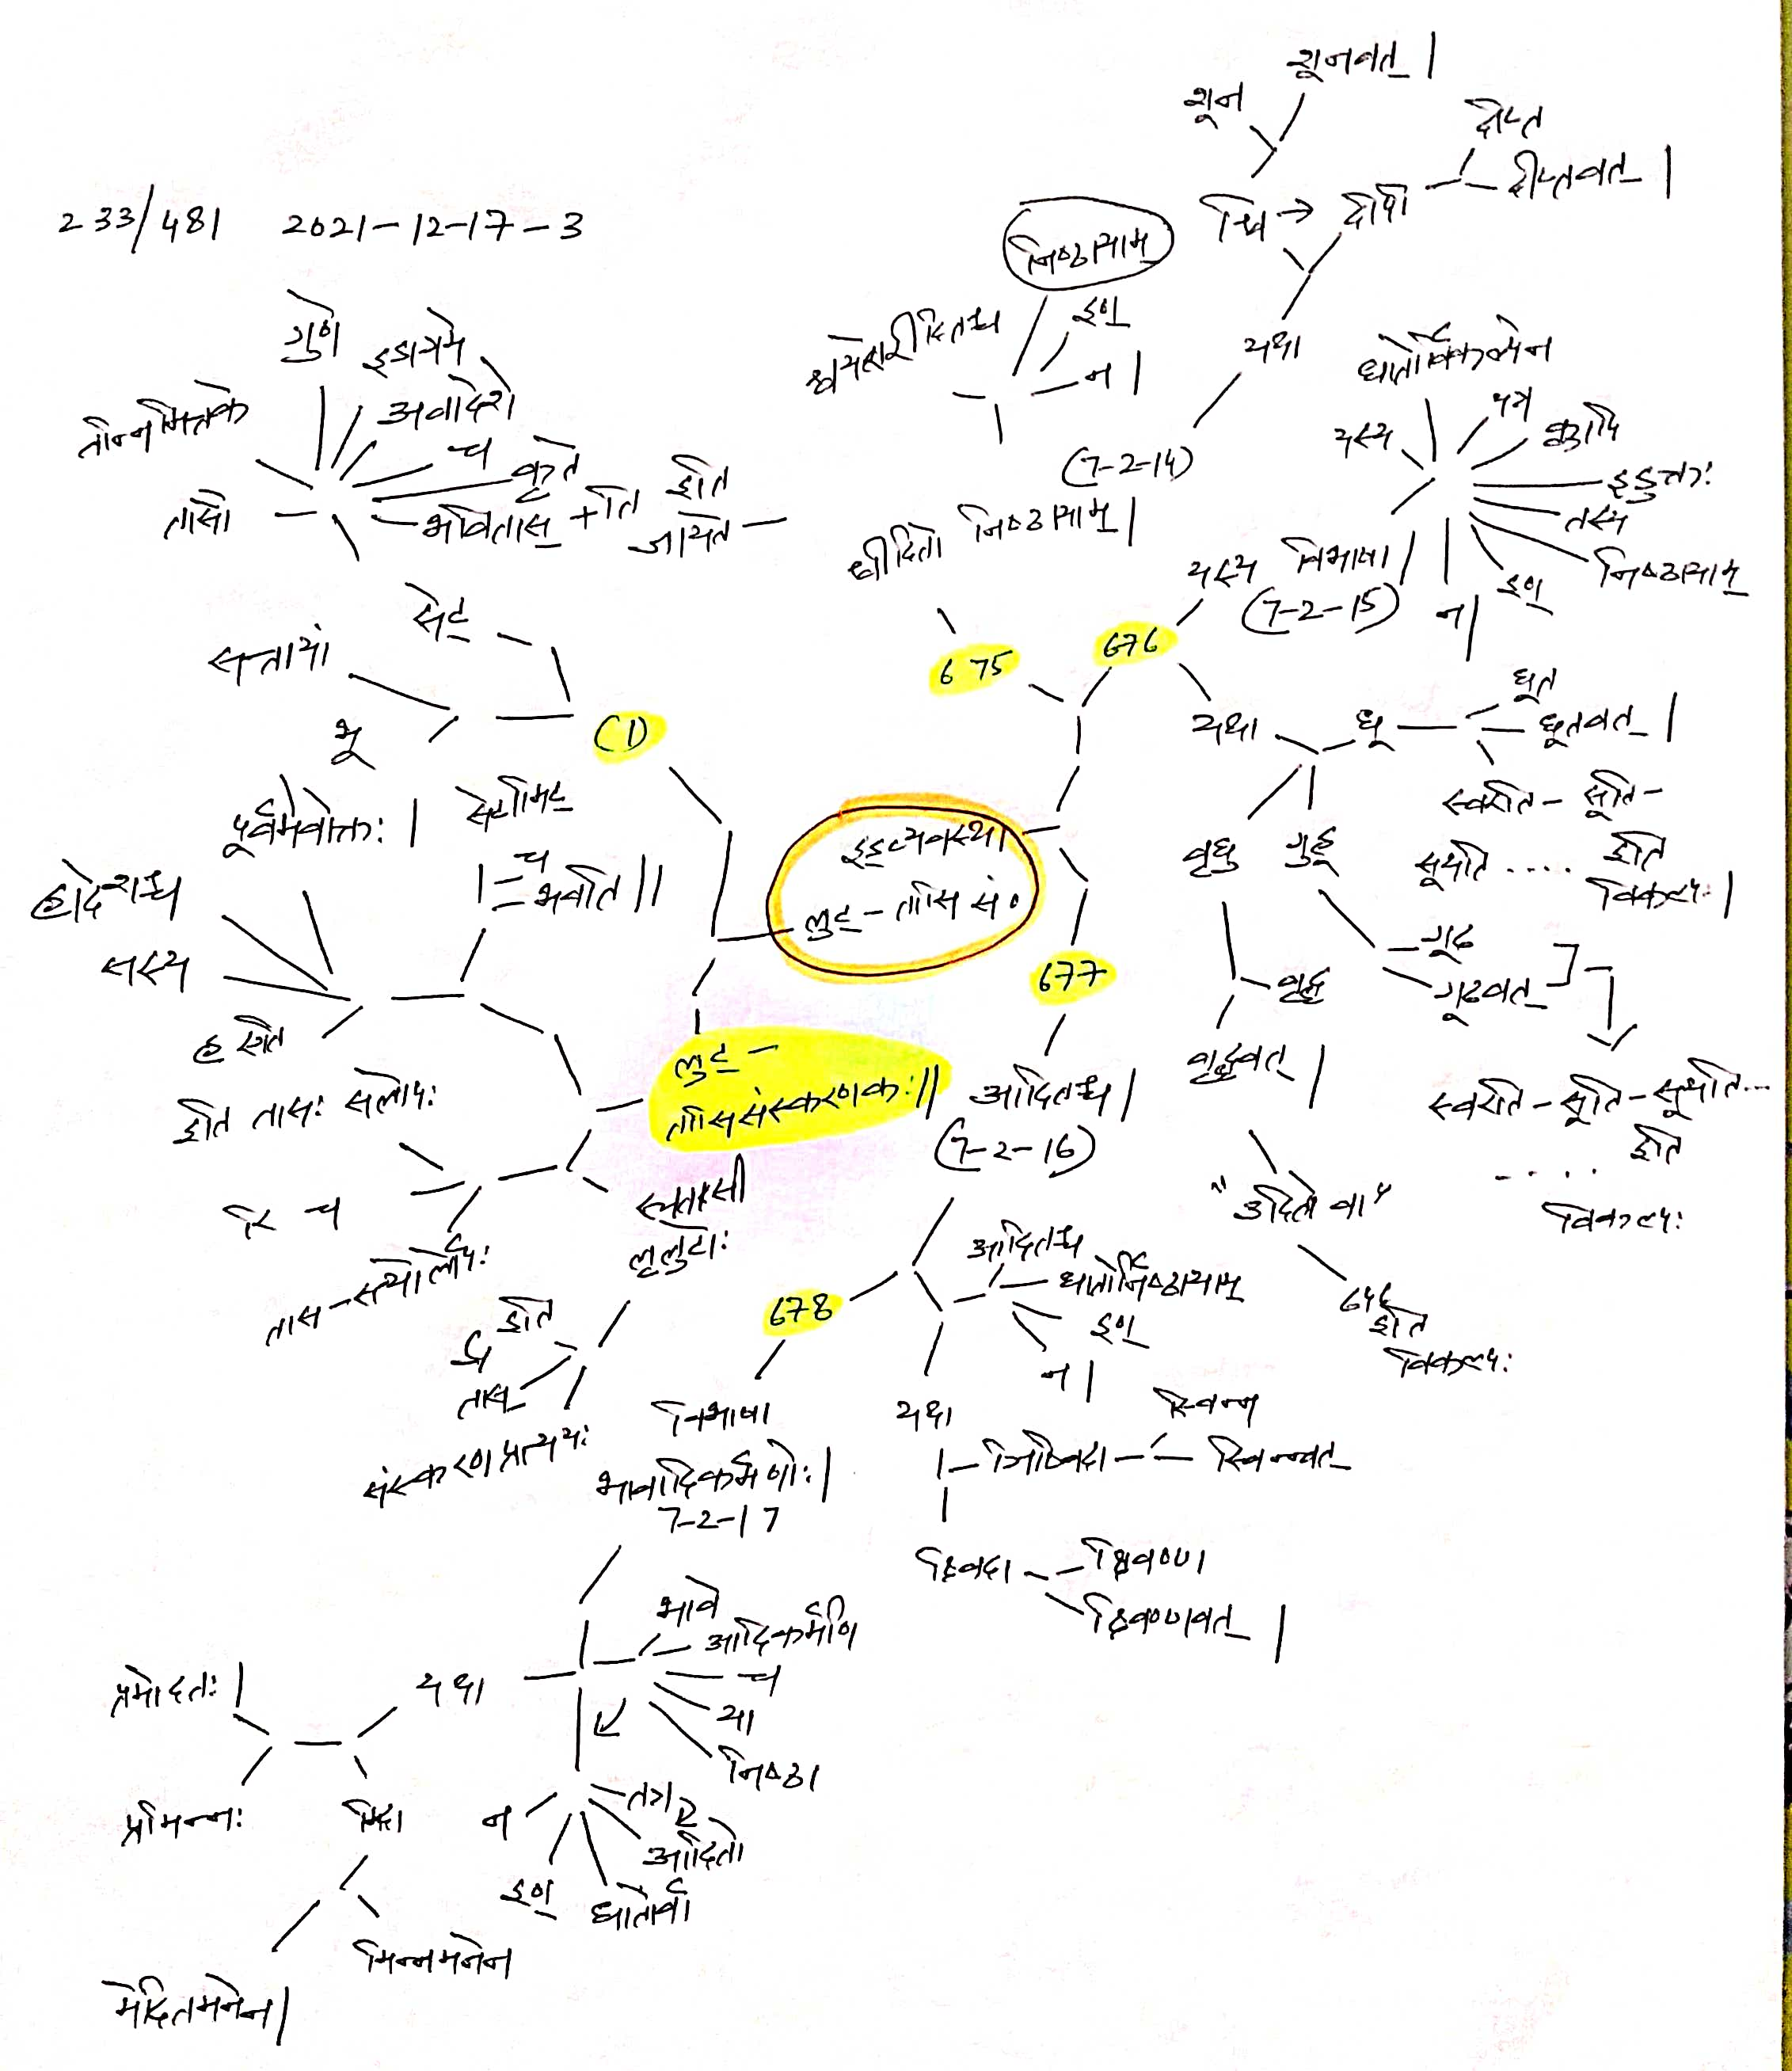 233/481 2021-12-17-3
शून
शूनवत् |
श्वि → दीपी
दीप्त
दीप्तवत् |
यथा
निष्ठायाम्
इण्
न |
(7-2-14)
श्वीदितो निष्ठायाम् |
675
676
यस्य विभाषा |
(7-2-15)
यस्य
धातोर्विकल्पेन
इडुक्तः
तस्य
निष्ठायाम्
इण्
न |
यथा
धू
धूत
धूतवत् |
स्वरति - सूति -
सूयति ..... इति
विकल्पः |
वृधु
गुहू
गूढ
गूढवत्
स्वरति - सूति - सूयति...
.... इति
विकल्पः
वृद्ध
वृद्धवत् |
"उदितो वा"
इति
विकल्पः
इड्व्यवस्था
लुट् - तासि सं०
677
आदितश्च |
(7-2-16)
आदितश्च
धातोर्निष्ठायाम्
इण्
न |
यथा
ञिष्विदा
स्विन्न
स्विन्नवत्
क्ष्विदा
क्ष्विण्ण
क्ष्विण्णवत् |
678
विभाषा
भावादिकर्मणोः |
7-2-17
भावे
आदिकर्मणि
च
या
निष्ठा
तत्र
आदितो
धातोर्वा
इण्
न
यथा
प्रमोदितः |
प्रमिन्नः
मिदा
मिन्नमनेन
मेदितमनेन |
लुट् -
तासिसंस्करणकः ||
(1)
भू
सत्तायां
सेट्
तासौ
तन्निमित्तके
गुणे
इडागमे
अवादेशे
च
कृते
भवितास् + ति इति
जायते -
स्यतासी
लृलुटोः
इति
तास्
संस्करणप्रत्ययः
तास - स्त्योर्लोपः
रि च
इति तासः सलोपः
ह एति
सस्य
हादेशश्च
पूर्वमेवोक्तः |
सेडनिट्
च
भवति ||